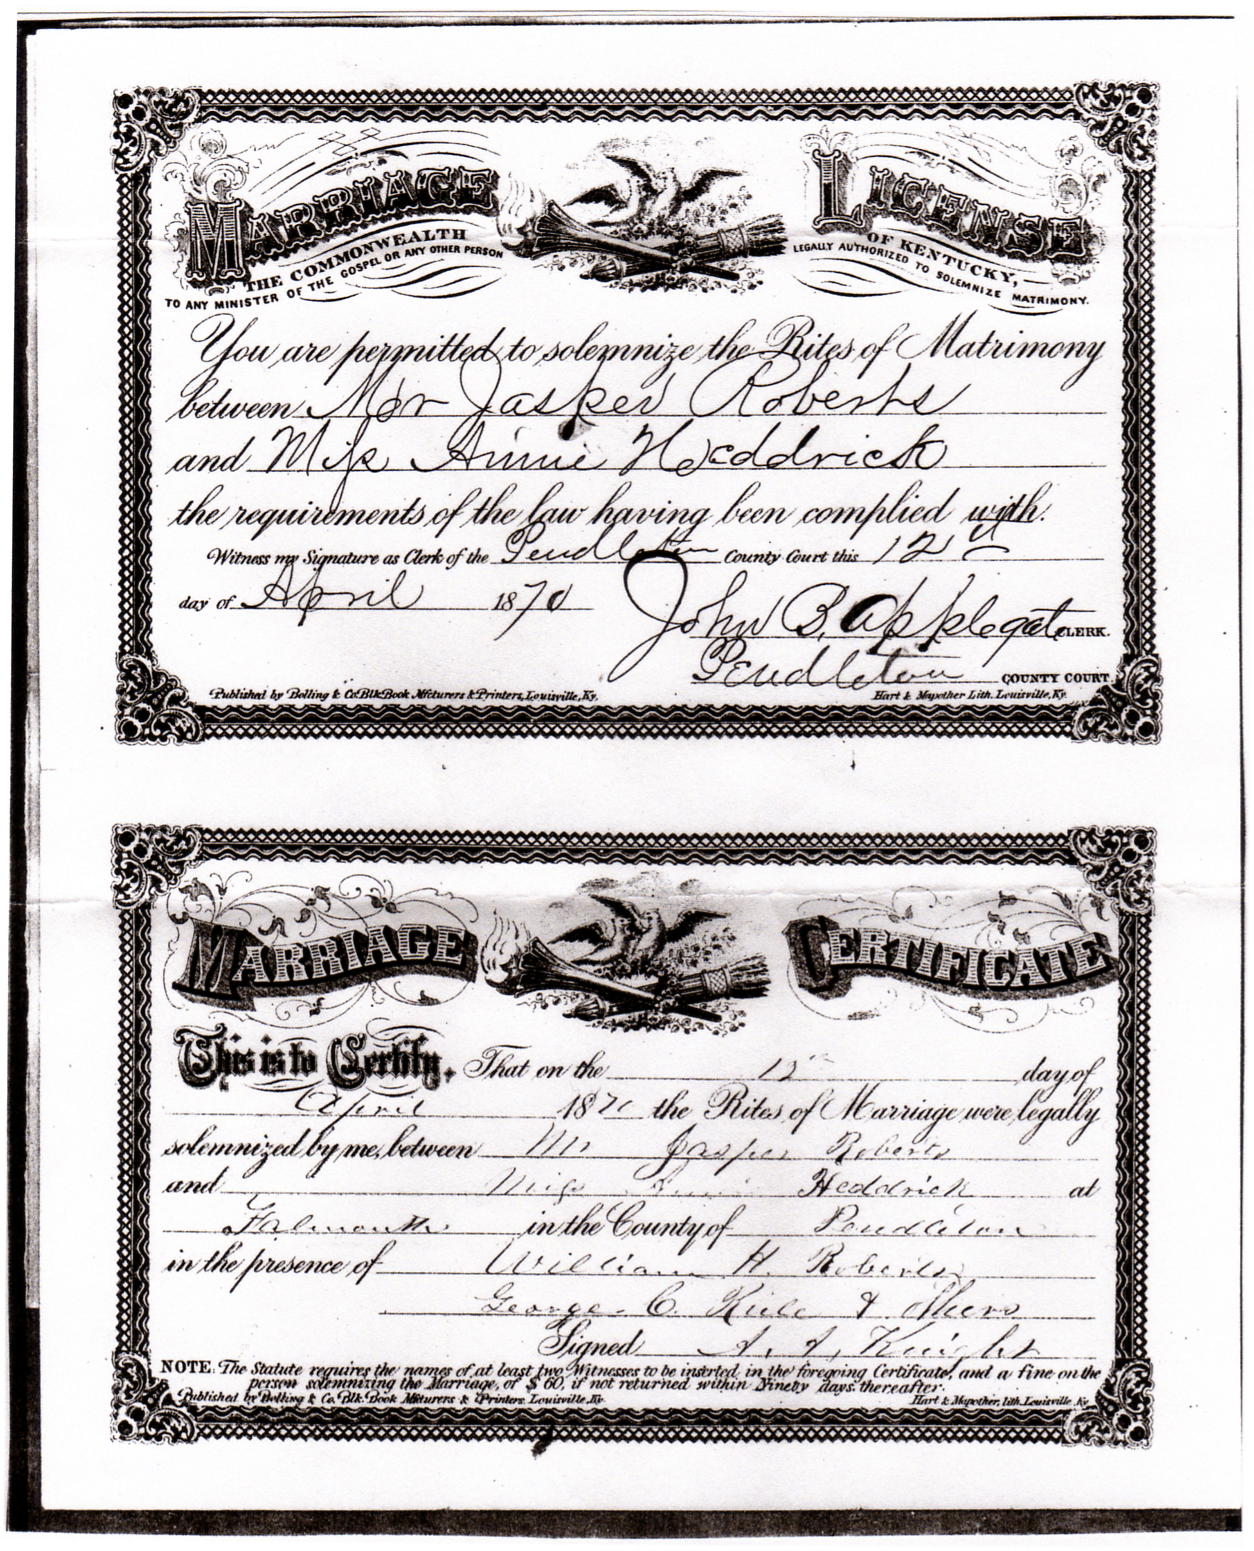 MARRIAGE LICENSE
THE COMMONWEALTH OF KENTUCKY,
TO ANY MINISTER OF THE GOSPEL OR ANY OTHER PERSON LEGALLY AUTHORIZED TO SOLEMNIZE MATRIMONY.
You are permitted to solemnize the Rites of Matrimony
between Mr Jasper Roberts
and Miss Annie Heddrick
the requirements of the law having been complied with.
Witness my Signature as Clerk of the Pendleton County Court this 12th
day of April 1870 John B. Applegate CLERK.
Pendleton COUNTY COURT
Published by Bolling & Co. Blk Book Mfcturers & Printers, Louisville, Ky. Hart & Mapother Lith. Louisville, Ky.
MARRIAGE CERTIFICATE
This is to Certify, That on the 12th day of
April 1870 the Rites of Marriage were legally
solemnized by me, between Mr Jasper Roberts
and Miss Heddrick at
Falmouth in the County of Pendleton
in the presence of William H. Roberts
George C. & others
Signed A. A. Knight
NOTE: The Statute requires the names of at least two Witnesses to be inserted in the foregoing Certificate, and a fine on the
person solemnizing the Marriage, of $60, if not returned within Ninety days thereafter.
Published by Bolling & Co. Blk. Book Mfcturers & Printers. Louisville, Ky. Hart & Mapother, lith. Louisville, Ky